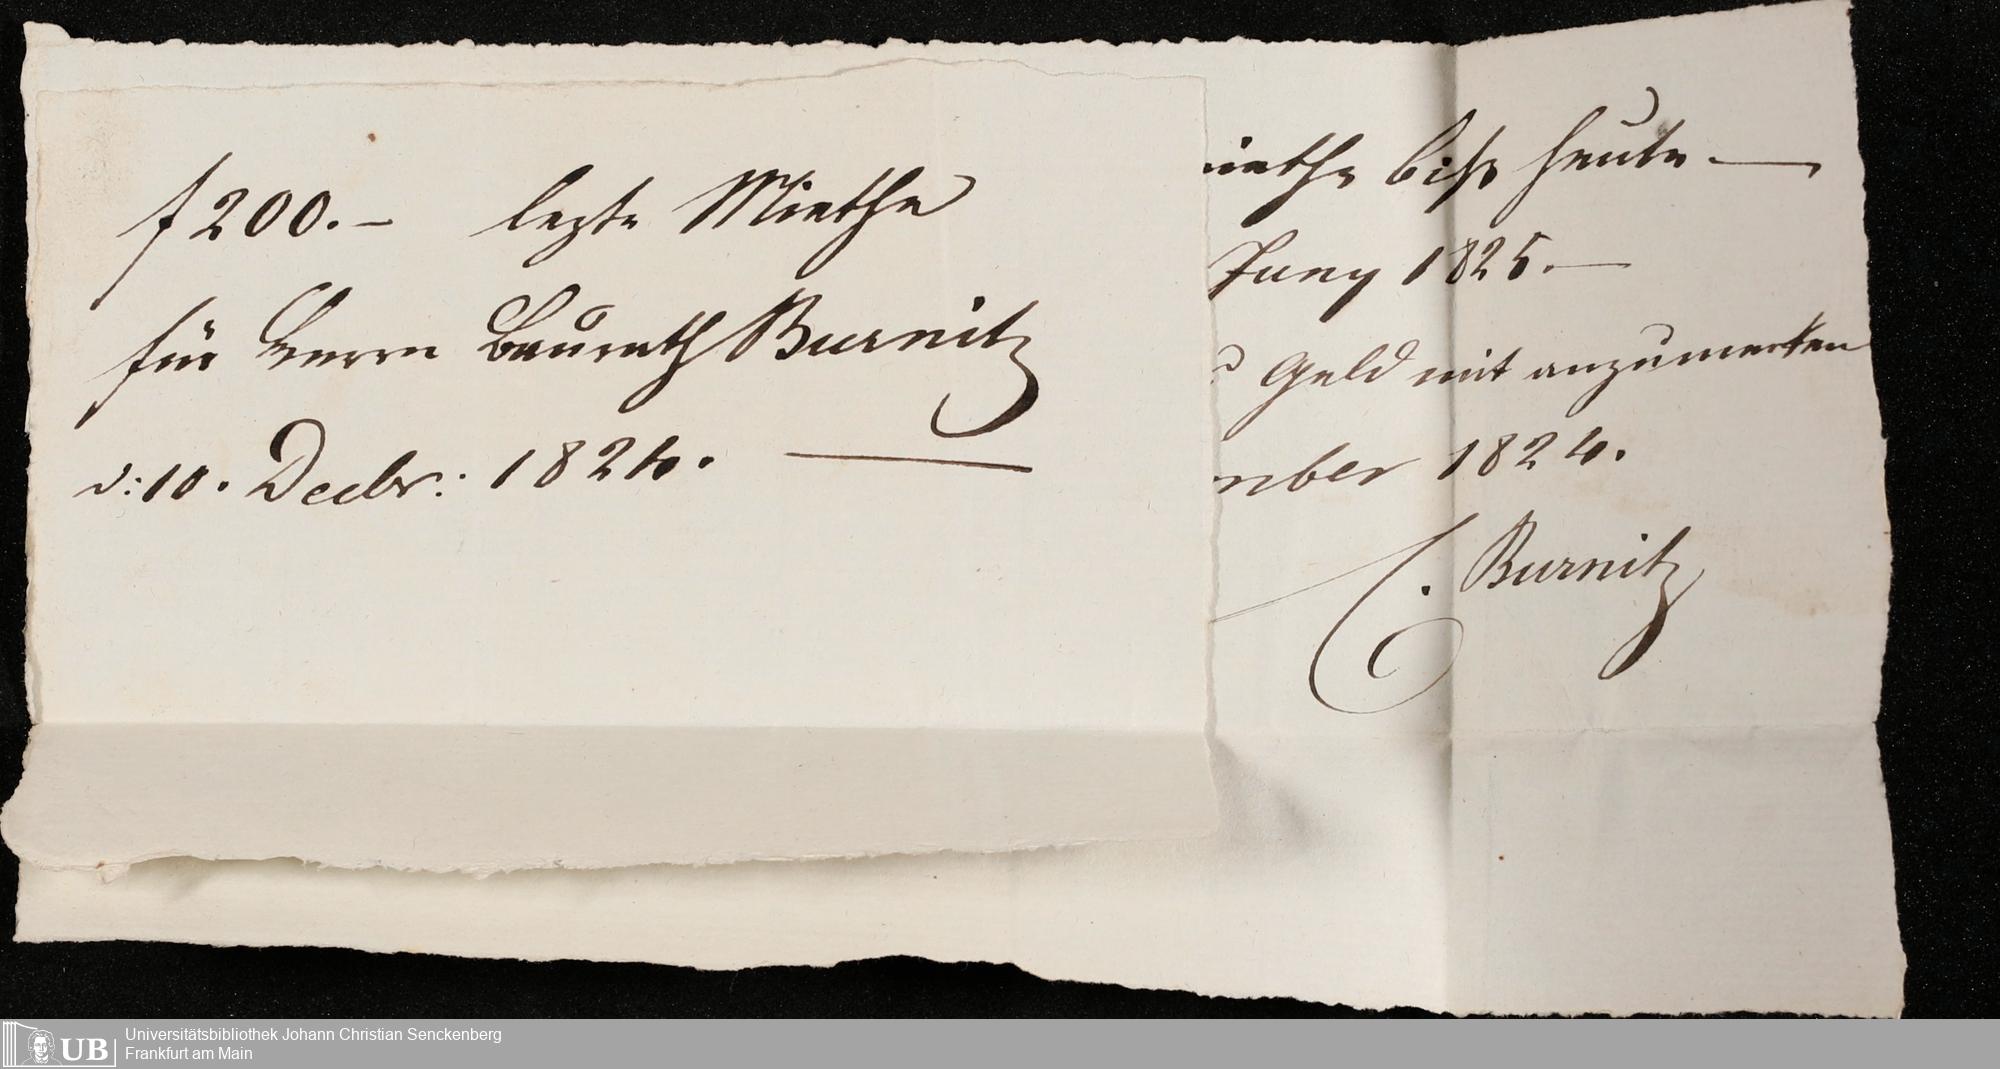 f 200.– lezte Miethe
für Herrn Baurath Burnitz
d: 10. Decbr: 1824. —
miethe bisß heute —
Juny 1825. —
Geld mit anzumerken
mber 1824.
C. Burnitz
Universitätsbibliothek Johann Christian Senckenberg
Frankfurt am Main
UB